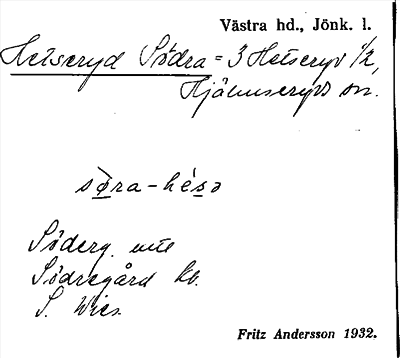 Västra hd., Jönk. l.
Hetseryd Södra = 3 Hetseryd 1/2,
Hjälmseryds sn.
sø̀ra-hésə
Söderg. utte
Södregård kb.
S. Wies.
Fritz Andersson 1932.